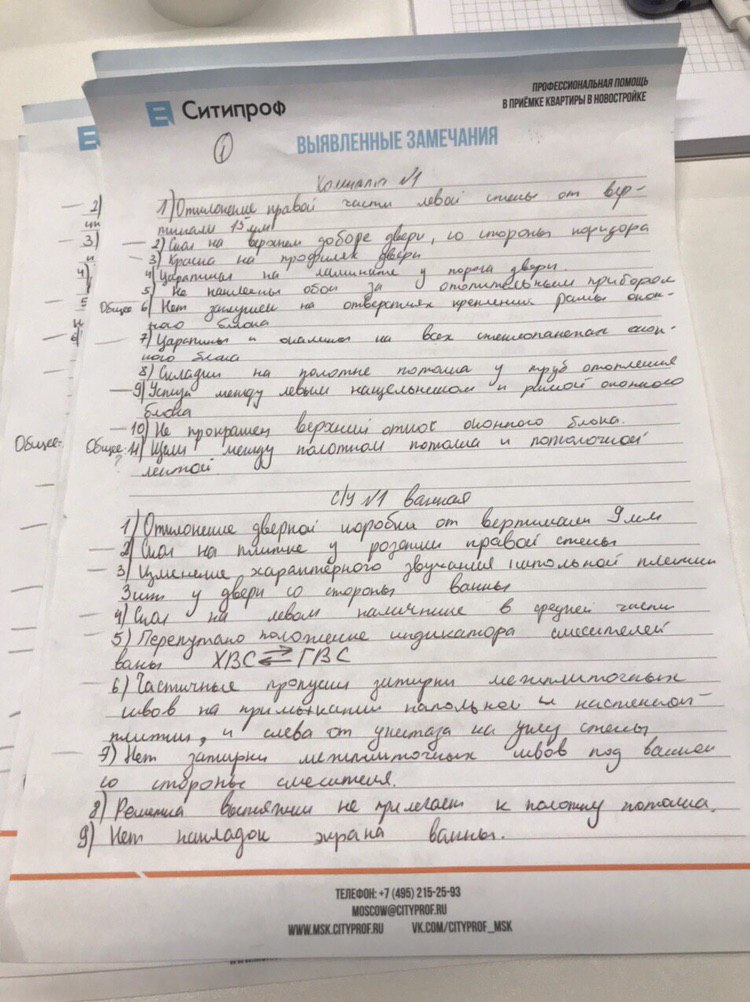 ПРОФЕССИОНАЛЬНАЯ ПОМОЩЬ
В ПРИЁМКЕ КВАРТИРЫ В НОВОСТРОЙКЕ
Ситипроф
ВЫЯВЛЕННЫЕ ЗАМЕЧАНИЯ
1
Комната №1
1) Отклонение правой части левой стены от вер-
тикали 15 мм
2) Скол на верхнем доборе двери, со стороны коридора
3) Краска на профилях двери
4) Царапина на ламинате у порога двери.
5) Не наклеены обои за отопительным прибором
Общее 6) Нет заглушек на отверстиях крепления рамы окон-
ного блока
7) Царапины и окалины на всех стеклопакетах окон-
ного блока
8) Складки на полотне потолка у труб отопления
9) Зазор между левым нащельником и рамой оконного
блока
10) Не прокрашен верхний откос оконного блока.
Общее 11) Щели между полотном потолка и потолочной
лентой.
С/У №1 ванная
1) Отклонение дверной коробки от вертикали 9 мм
2) Скол на плитке у розетки правой стены
3) Изменение характерного звучания напольной плитки
3 шт у двери со стороны ванны
4) Скол на левом наличнике в средней части
5) Перепутано положение индикатора смесителей
ваны ХВС ⇄ ГВС
6) Частичные пропуски затирки межплиточных
швов на примыкании напольной и настенной
плитки, и слева от унитаза на углу стены
7) Нет затирки межплиточных швов под ванной
со стороны смесителя.
8) Решетка вытяжки не прилегает к полотну потолка.
9) Нет накладок экрана ванны.
ТЕЛЕФОН: +7 (495) 215-25-93
MOSCOW@CITYPROF.RU
WWW.MSK.CITYPROF.RU VK.COM/CITYPROF_MSK
2)
3)
4)
5
6
Общее